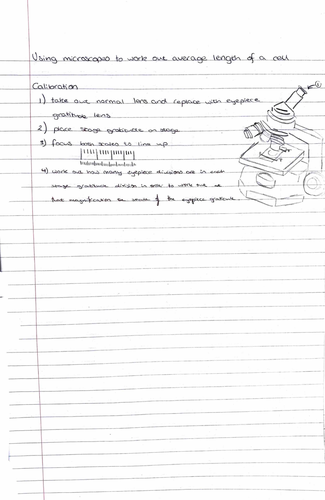 Using microscopes to work out average length of a cell
Calibration
1) take out normal lens and replace with eyepiece
gratitude lens
2) place stage graticule on stage
3) focus both scales to line up
4) work out how many eyepiece divisions are in each
stage gratitude division in order to work out at
that magnification the value of the eyepiece graticule
①